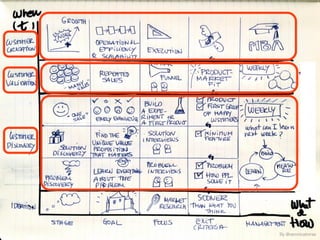 When
(t)
GROWTH
CUSTOMER
CREATION
OPERATIONAL
EFFICIENCY
& SCALABILITY
EXECUTION
MBA
CUSTOMER
VALIDATION
REPEATED
SALES
FUNNEL
PRODUCT-
MARKET
FIT
WEEKLY
CUSTOMER
DISCOVERY
ONE
SALE
EARLY EVANGELIST
BUILD
A EXPE-
RIMENT OR
A FIRST PRODUCT
PRODUCT
FIRST GROUP
OF HAPPY
CUSTOMERS
WEEKLY
WHAT DO I
NEXT WEEK?
SOLUTION
DISCOVERY
FIND THE
UNIQUE VALUE
PROPOSITION
THAT MATTERS
SOLUTION
INTERVIEWS
MINIMUM
FEATURE
BUILD
MEASURE
LEARN
PROBLEM
DISCOVERY
LEARN EVERYTHING
ABOUT THE
PROBLEM
PROBLEM
INTERVIEWS
PROBLEM
HOW PPL
SOLVE IT
IDEATION
MARKET
RESEARCH
SOONER
THAN WHAT YOU
THINK
What
&
How
STAGE
GOAL
FOCUS
EXIT
CRITERIA
MANAGEMENT